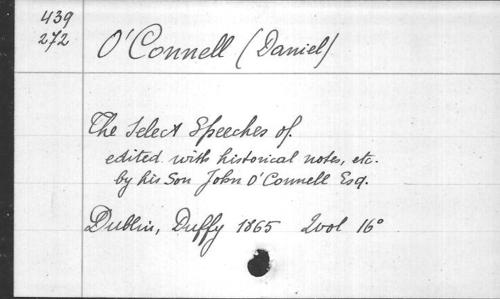 439
272
O'Connell (Daniel)
The Select Speeches of.
edited with historical notes, etc.
by his Son John O'Connell Esq.
Dublin, Duffy 1865 2vol 16°